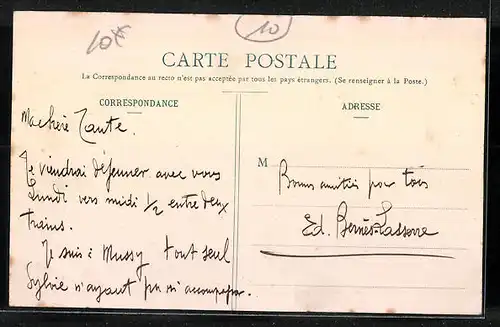 10f
10
CARTE POSTALE
La Correspondance au recto n'est pas acceptée par tous les pays étrangers. (Se renseigner à la Poste.)
CORRESPONDANCE
Ma chère Tante.
Je viendrai déjeuner avec vous
Lundi vers midi 1/2 entre deux
trains.
Je suis à Mussy tout seul
Sylvie n'ayant pu m'accompagner.
ADRESSE
M
Bonnes amitiés pour tous
Ed. Bernès-Lasserre